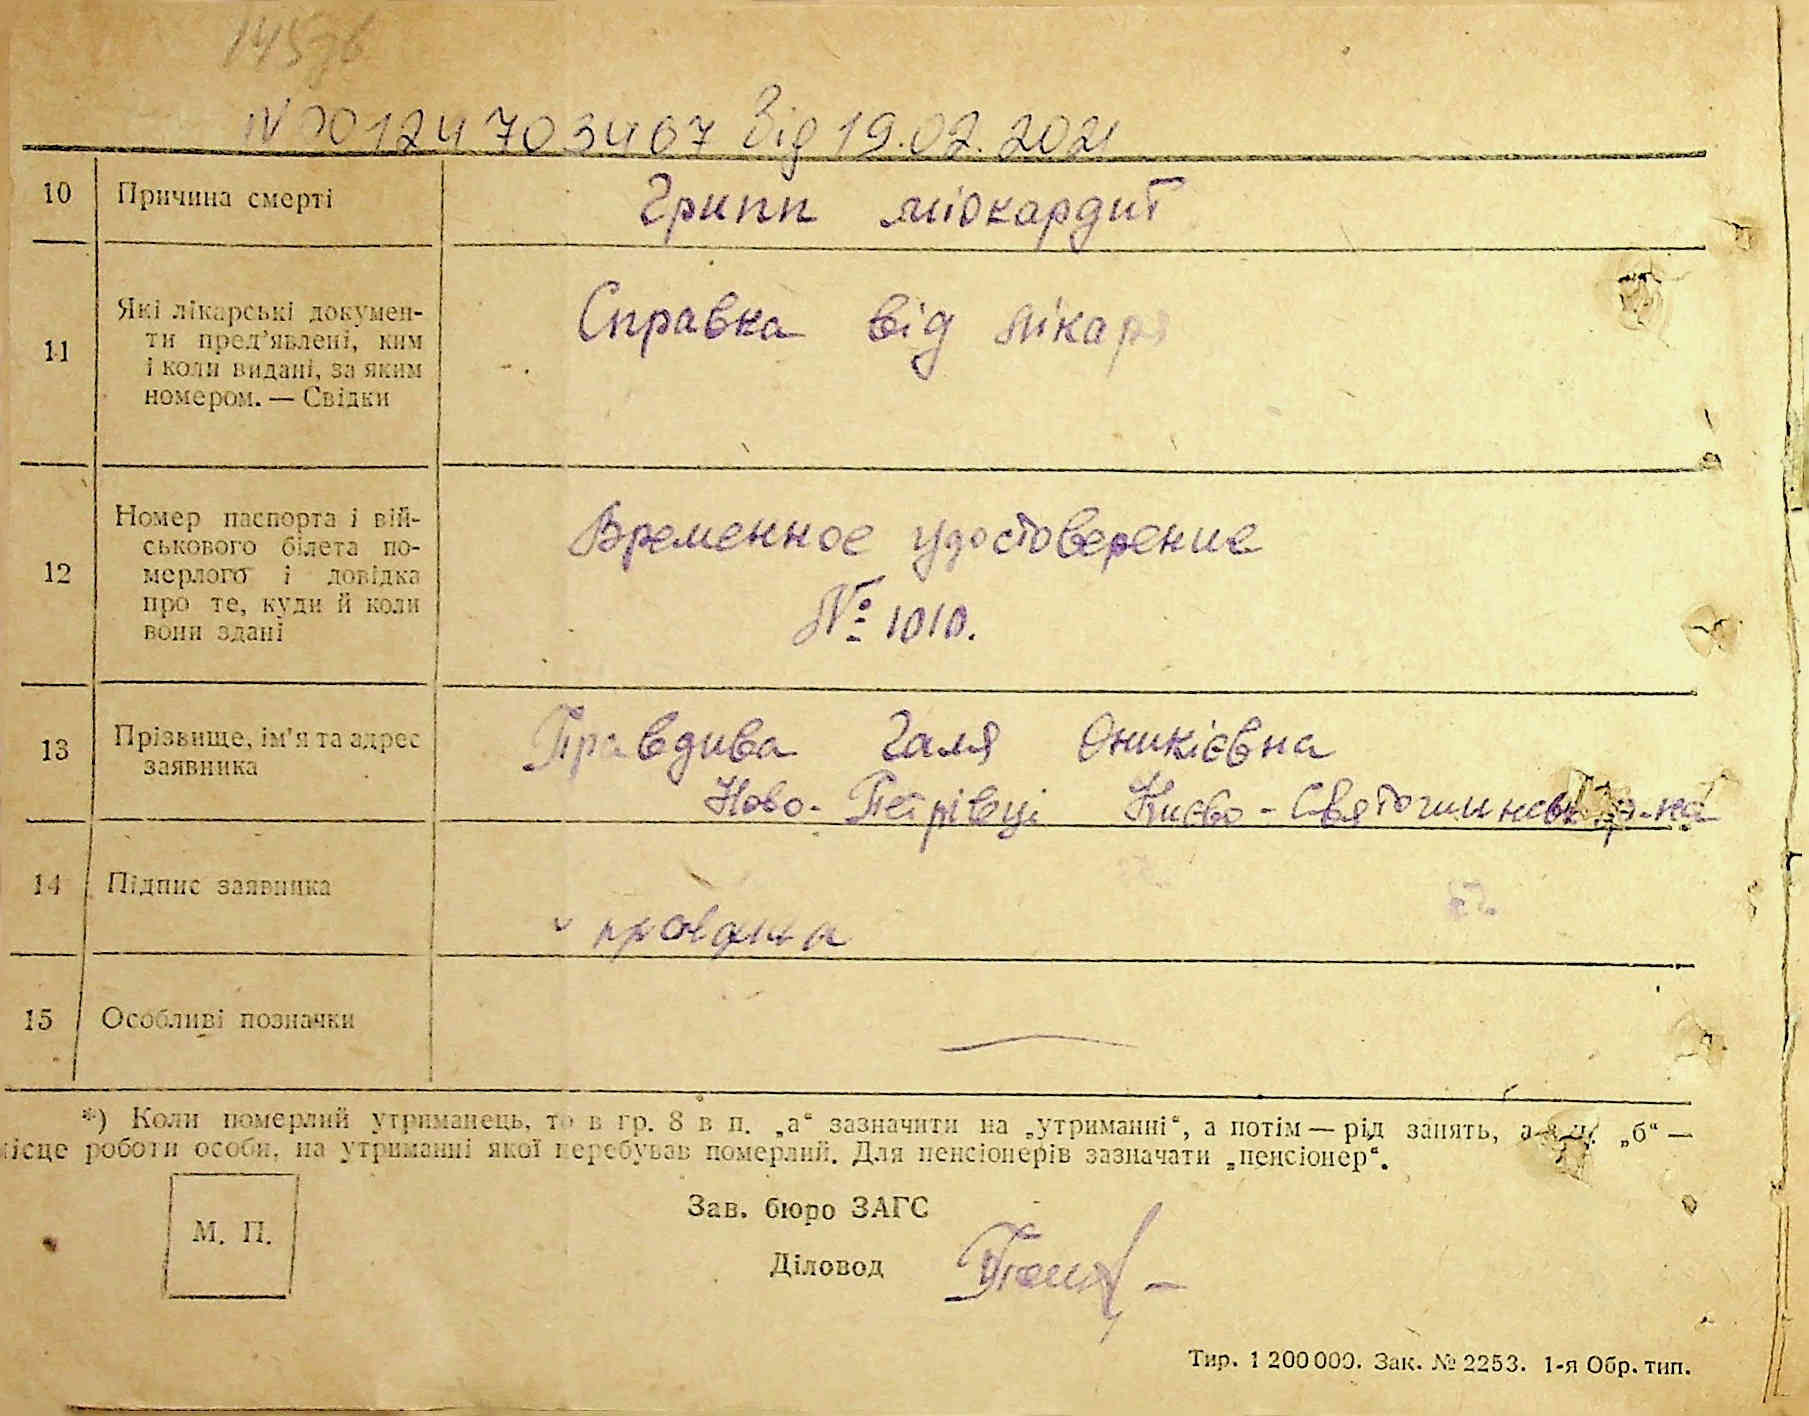 145зв
N 00124703467 від 19.02.2021
10 Причина смерті Грипп міокардит
11 Які лікарські докумен-
ти пред'явлені, ким
і коли видані, за яким
номером. — Свідки
Справка від лікаря
12 Номер паспорта і вій-
ськового білета по-
мерлого і довідка
про те, куди й коли
вони здані
Временное удостоверение
№ 1010.
13 Прізвище, ім'я та адрес
заявника
Правдива Галя Оникієвна
Ново-Петрівці Києво-Святошинськ р-на
14 Підпис заявника
15 Особливі позначки
*) Коли померлий утриманець, то в гр. 8 в п. „а“ зазначити на „утриманні“, а потім — рід занять, а в п. „б“ —
місце роботи особи, на утриманні якої перебував померлий. Для пенсіонерів зазначати „пенсіонер“.
М. П.
Зав. бюро ЗАГС
Діловод
Тир. 1 200 000. Зак. № 2253. 1-я Обр. тип.